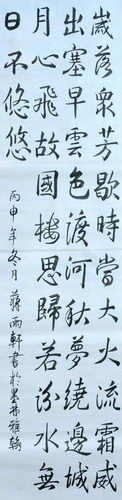 歲落衆芳歇時當大火流霜威
出塞早雲色渡河秋夢繞邊城
月心飛故國樓思歸若汾水無
日不悠悠
丙申年冬月蔣雨軒書於墨雅翰